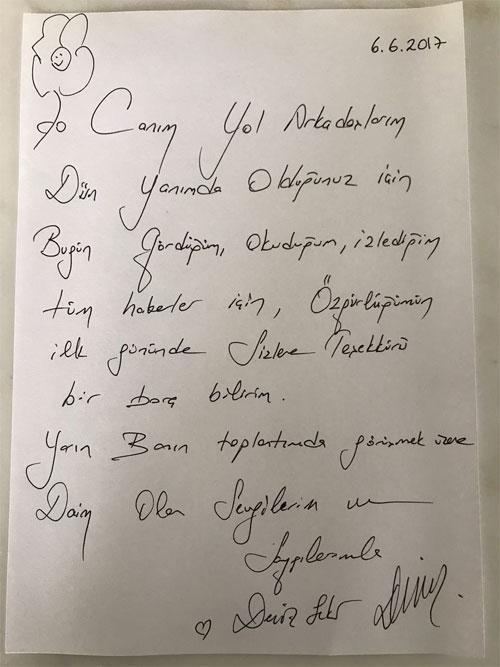 6.6.2017
Canım Yol Arkadaşlarım
Dün yanımda Olduğunuz için
Bugün gördüğüm, okuduğum, izlediğim
tüm haberler için, Özgürlüğümün
ilk gününde Sizlere Teşekkürü
bir borç bilirim.
Yarın Basın toplantımda görüşmek üzere
Daim Olan Sevgilerim ve
Saygılarımla
Deniz Seki